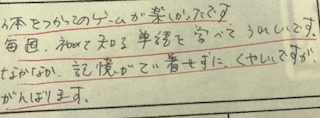 本をつかってのゲームが楽しかったです
毎回、初めて知る単語を学べてうれしいです。
なかなか、記憶がで着せずに、くやしいですが、
がんばります。